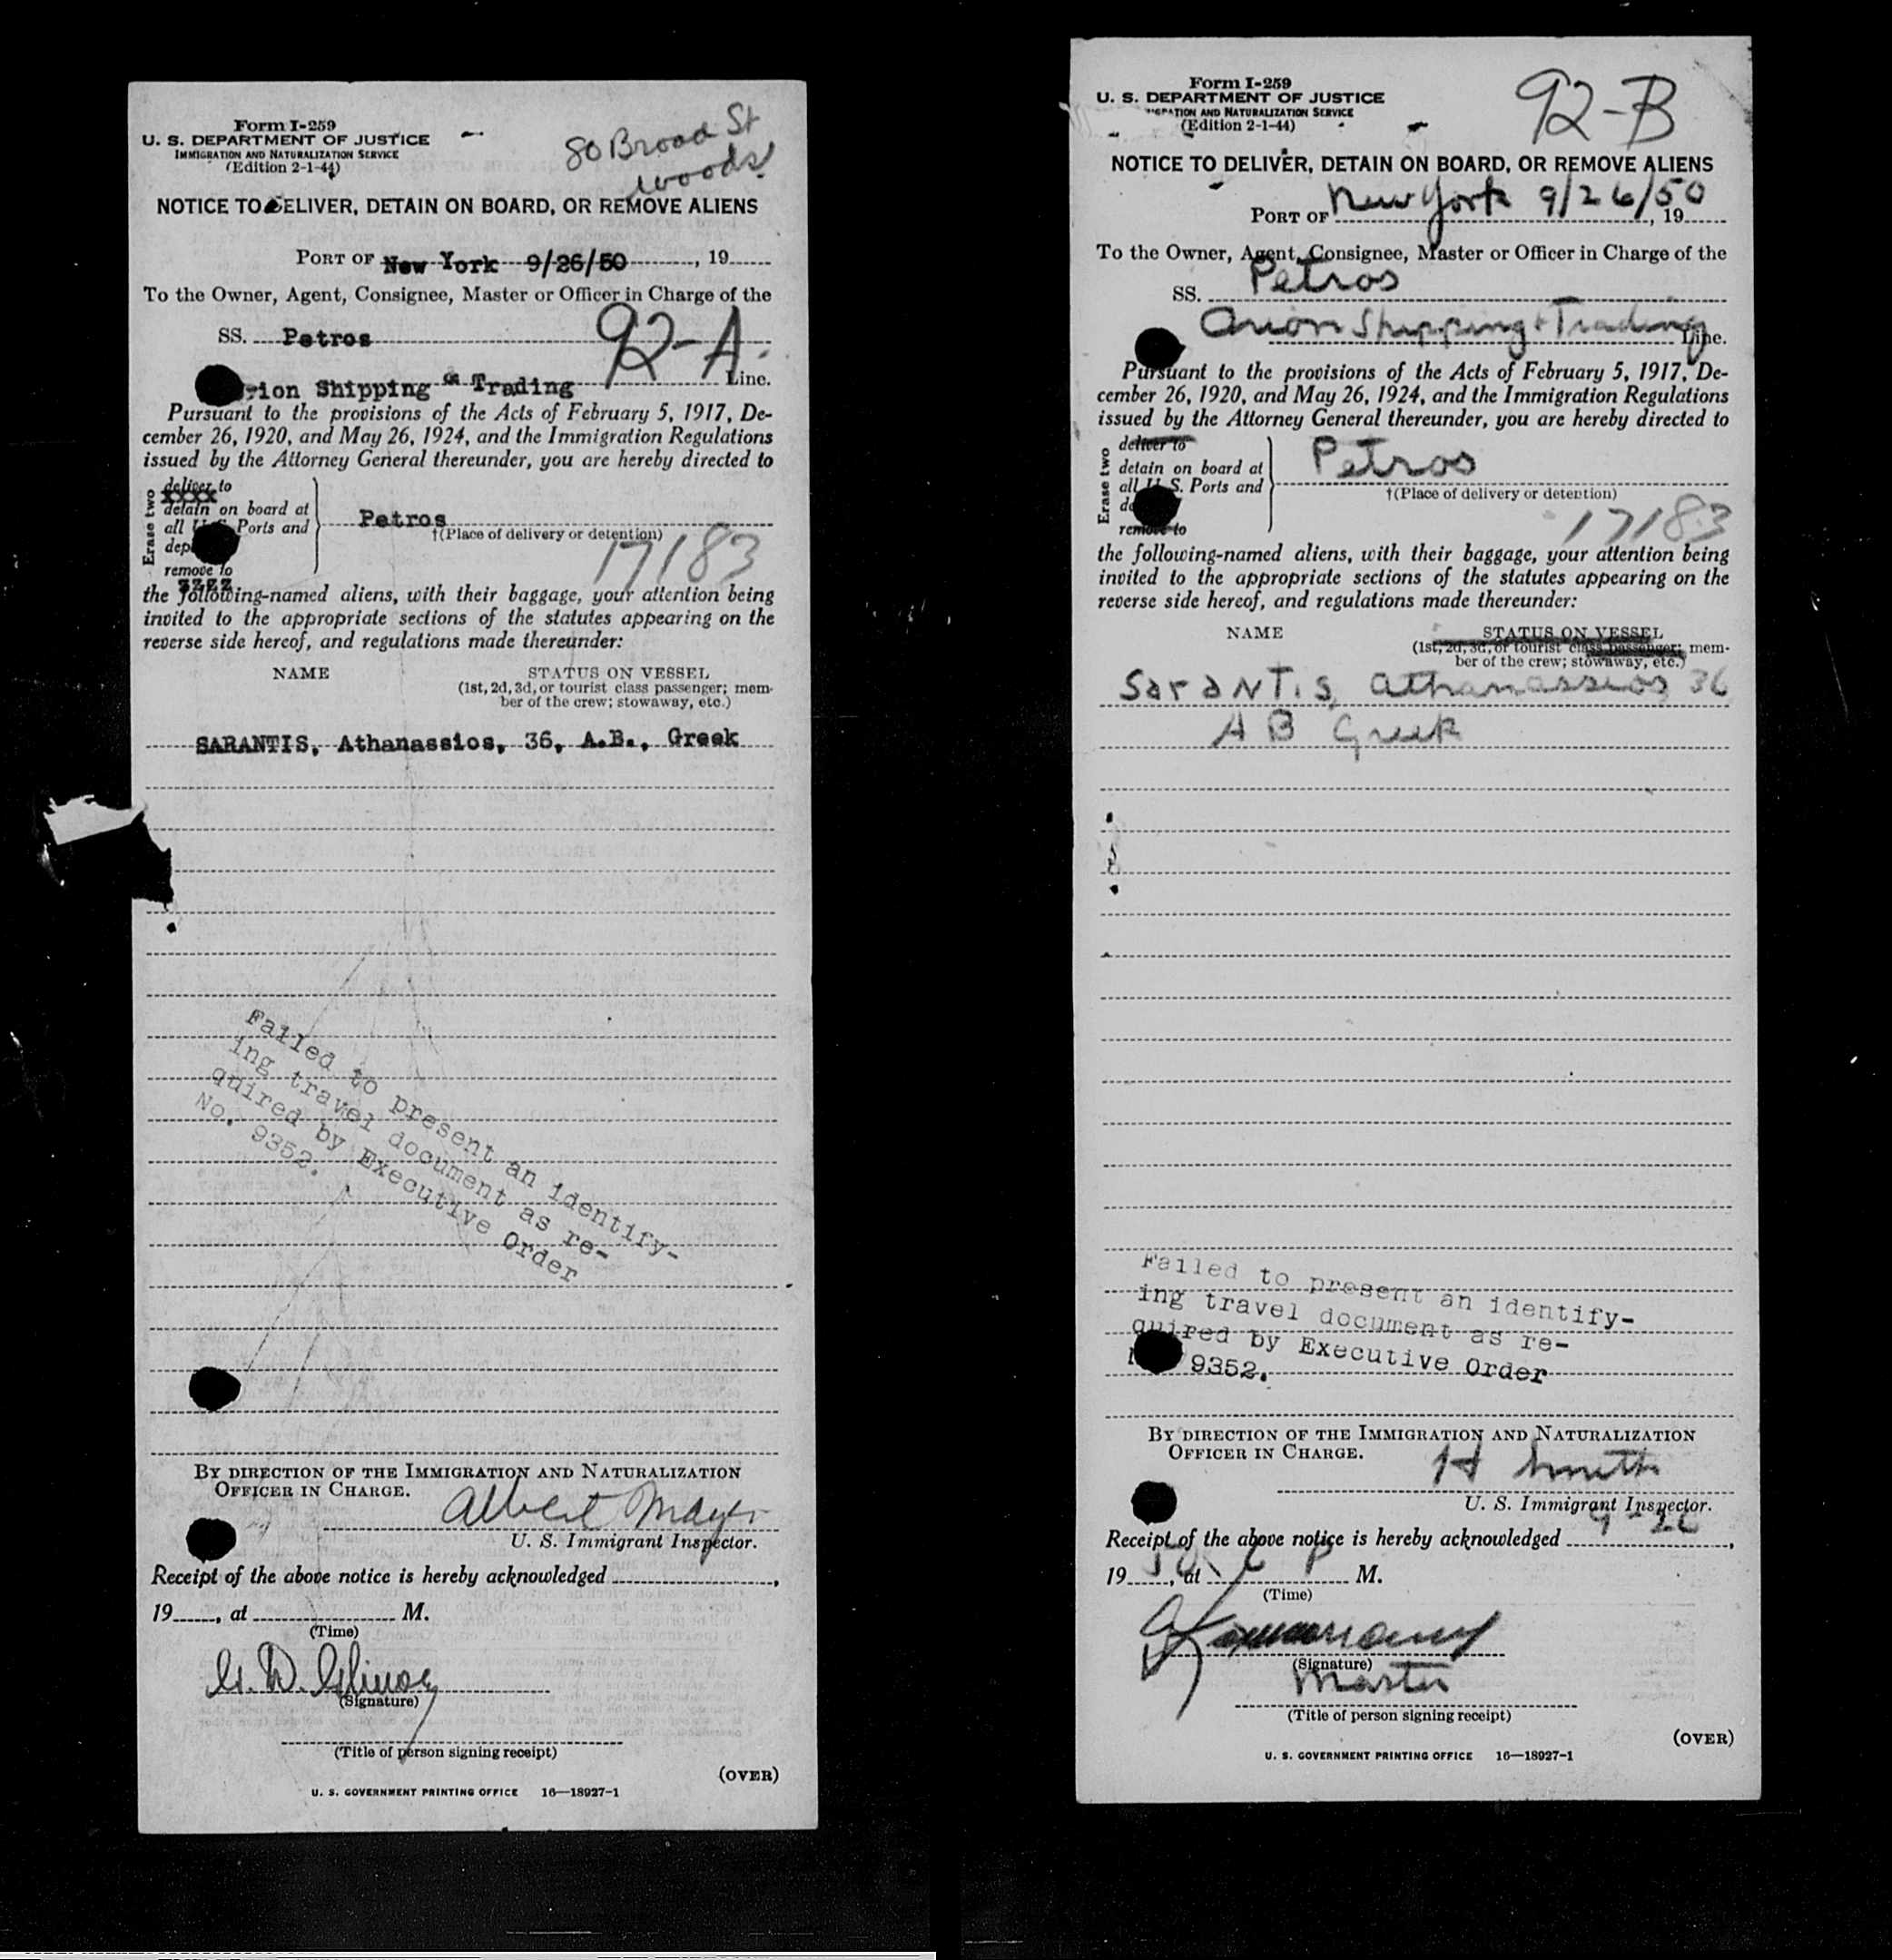 Form I-259
U. S. DEPARTMENT OF JUSTICE
IMMIGRATION AND NATURALIZATION SERVICE
(Edition 2-1-44)
80 Broad St
Woods
NOTICE TO DELIVER, DETAIN ON BOARD, OR REMOVE ALIENS
PORT OF New York 9/26/50, 19
To the Owner, Agent, Consignee, Master or Officer in Charge of the
SS. Petros
92-A
rion Shipping & Trading Line.
Pursuant to the provisions of the Acts of February 5, 1917, De-
cember 26, 1920, and May 26, 1924, and the Immigration Regulations
issued by the Attorney General thereunder, you are hereby directed to
Erase two
deliver to
xxxx
detain on board at
all U. S. Ports and
dep
remove to
zzzz
Petros
†(Place of delivery or detention)
17183
the following-named aliens, with their baggage, your attention being
invited to the appropriate sections of the statutes appearing on the
reverse side hereof, and regulations made thereunder:
NAME STATUS ON VESSEL
(1st, 2d, 3d, or tourist class passenger; mem-
ber of the crew; stowaway, etc.)
SARANTIS, Athanassios, 36, A.B., Greek
Failed to present an identify-
ing travel document as re-
quired by Executive Order
No. 9352.
BY DIRECTION OF THE IMMIGRATION AND NATURALIZATION
OFFICER IN CHARGE.
Albert Mayer
U. S. Immigrant Inspector.
Receipt of the above notice is hereby acknowledged ,
19 , at M.
(Time)
(Signature)
(Title of person signing receipt)
(OVER)
U. S. GOVERNMENT PRINTING OFFICE 16—18927-1
Form I-259
U. S. DEPARTMENT OF JUSTICE
IGRATION AND NATURALIZATION SERVICE
(Edition 2-1-44)
92-B
NOTICE TO DELIVER, DETAIN ON BOARD, OR REMOVE ALIENS
PORT OF New York 9/26/50, 19
To the Owner, Agent, Consignee, Master or Officer in Charge of the
SS. Petros
Orion Shipping & Trading Line.
Pursuant to the provisions of the Acts of February 5, 1917, De-
cember 26, 1920, and May 26, 1924, and the Immigration Regulations
issued by the Attorney General thereunder, you are hereby directed to
Erase two
deliver to
detain on board at
all U. S. Ports and
de
remove to
Petros
†(Place of delivery or detention)
17183
the following-named aliens, with their baggage, your attention being
invited to the appropriate sections of the statutes appearing on the
reverse side hereof, and regulations made thereunder:
NAME STATUS ON VESSEL
(1st, 2d, 3d, or tourist class passenger; mem-
ber of the crew; stowaway, etc.)
Sarantis, Athanassios 36
A B Greek
Failed to present an identify-
ing travel document as re-
quired by Executive Order
9352.
BY DIRECTION OF THE IMMIGRATION AND NATURALIZATION
OFFICER IN CHARGE.
H Smith
U. S. Immigrant Inspector.
Receipt of the above notice is hereby acknowledged 9-26,
19 50, at 6 P M.
(Time)
(Signature)
Master
(Title of person signing receipt)
(OVER)
U. S. GOVERNMENT PRINTING OFFICE 16—18927-1